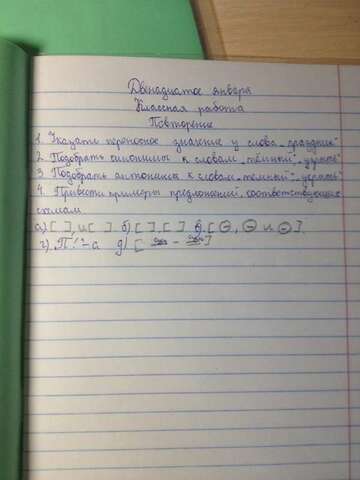 Двенадцатое января
Классная работа
Повторение
1. Указать переносное значение у слова „праздник"
2. Подобрать синонимы к словам „тёмный", „украсть"
3. Подобрать антонимы к словам „темный",
4. Привести примеры предложений, соответствующих
схемам
а) [ ], и [ ] б) [ ], [ ] в) [○, ○ и ○]
г) „П!" – а д) [ – ]